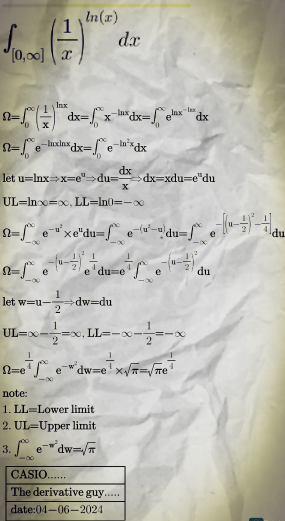 ∫_[0,∞] (1/x)^ln(x) dx
Ω=∫_0^∞ (1/x)^lnx dx=∫_0^∞ x^-lnx dx=∫_0^∞ e^lnx^-lnx dx
Ω=∫_0^∞ e^-lnxlnx dx=∫_0^∞ e^-ln²x dx
let u=lnx⇒x=e^u⇒du=dx/x⇒dx=xdu=e^u du
UL=ln∞=∞, LL=ln0=-∞
Ω=∫_-∞^∞ e^-u²×e^u du=∫_-∞^∞ e^-(u²-u) du=∫_-∞^∞ e^-[(u-1/2)²-1/4] du
Ω=∫_-∞^∞ e^-(u-1/2)² e^1/4 du=e^1/4 ∫_-∞^∞ e^-(u-1/2)² du
let w=u-1/2⇒dw=du
UL=∞-1/2=∞, LL=-∞-1/2=-∞
Ω=e^1/4 ∫_-∞^∞ e^-w² dw=e^1/4×√π=√πe^1/4
note:
1. LL=Lower limit
2. UL=Upper limit
3. ∫_-∞^∞ e^-w² dw=√π
CASIO......
The derivative guy.....
date:04-06-2024